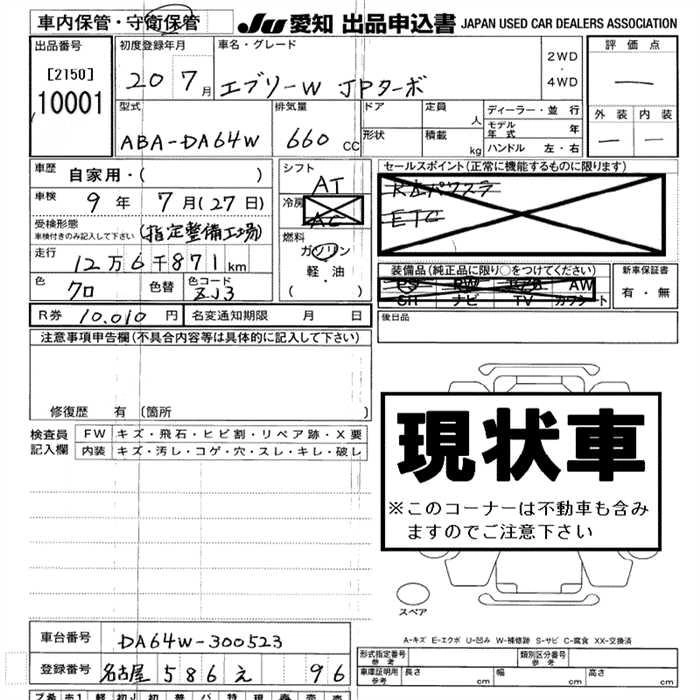 車内保管・守衛保管
JU 愛知 出品申込書 JAPAN USED CAR DEALERS ASSOCIATION
出品番号
[2150]
10001
初度登録年月
20 7月
車名・グレード
エブリーW JPターボ
2WD
・
4WD
評価点
―
外装 内装
― ―
型式
ABA-DA64W
排気量
660 cc
ドア
形状
定員 人
積載 kg
ディーラー・並行
モデル年式 年
ハンドル 左・右
車歴 自家用・( )
車検 9年 7月(27日)
受検形態
車検付きのみ記入して下さい
(指定整備工場)
走行
12万6千871km
色 クロ
色替
色コード
ZJ3
シフト
AT
冷房
AC
燃料
ガソリン
軽・油
( ・ )
セールスポイント(正常に機能するものに限ります)
ETC
装備品(純正品に限り○をつけてください)
PS PW AW
SR ナビ TV カワシート
新車保証書
有・無
R券 10.010円
名変通知期限 月 日
後日品
注意事項申告欄(不具合内容等は具体的に記入して下さい)
修復歴 有(箇所 )
検査員記入欄
FW キズ・飛石・ヒビ割・リペア跡・X要
内装 キズ・汚レ・コゲ・穴・スレ・キレ・破レ
現状車
※このコーナーは不動車も含み
ますのでご注意下さい
スペア
A-キズ E-エクボ U-凹み W-補修跡 S-サビ C-腐食 XX-交換済
車台番号 DA64W-300523
登録番号 名古屋 586 え 96
形式指定番号
参考
類別区分番号
参考
車庫証明用
参考
長さ cm
幅 cm
高さ cm